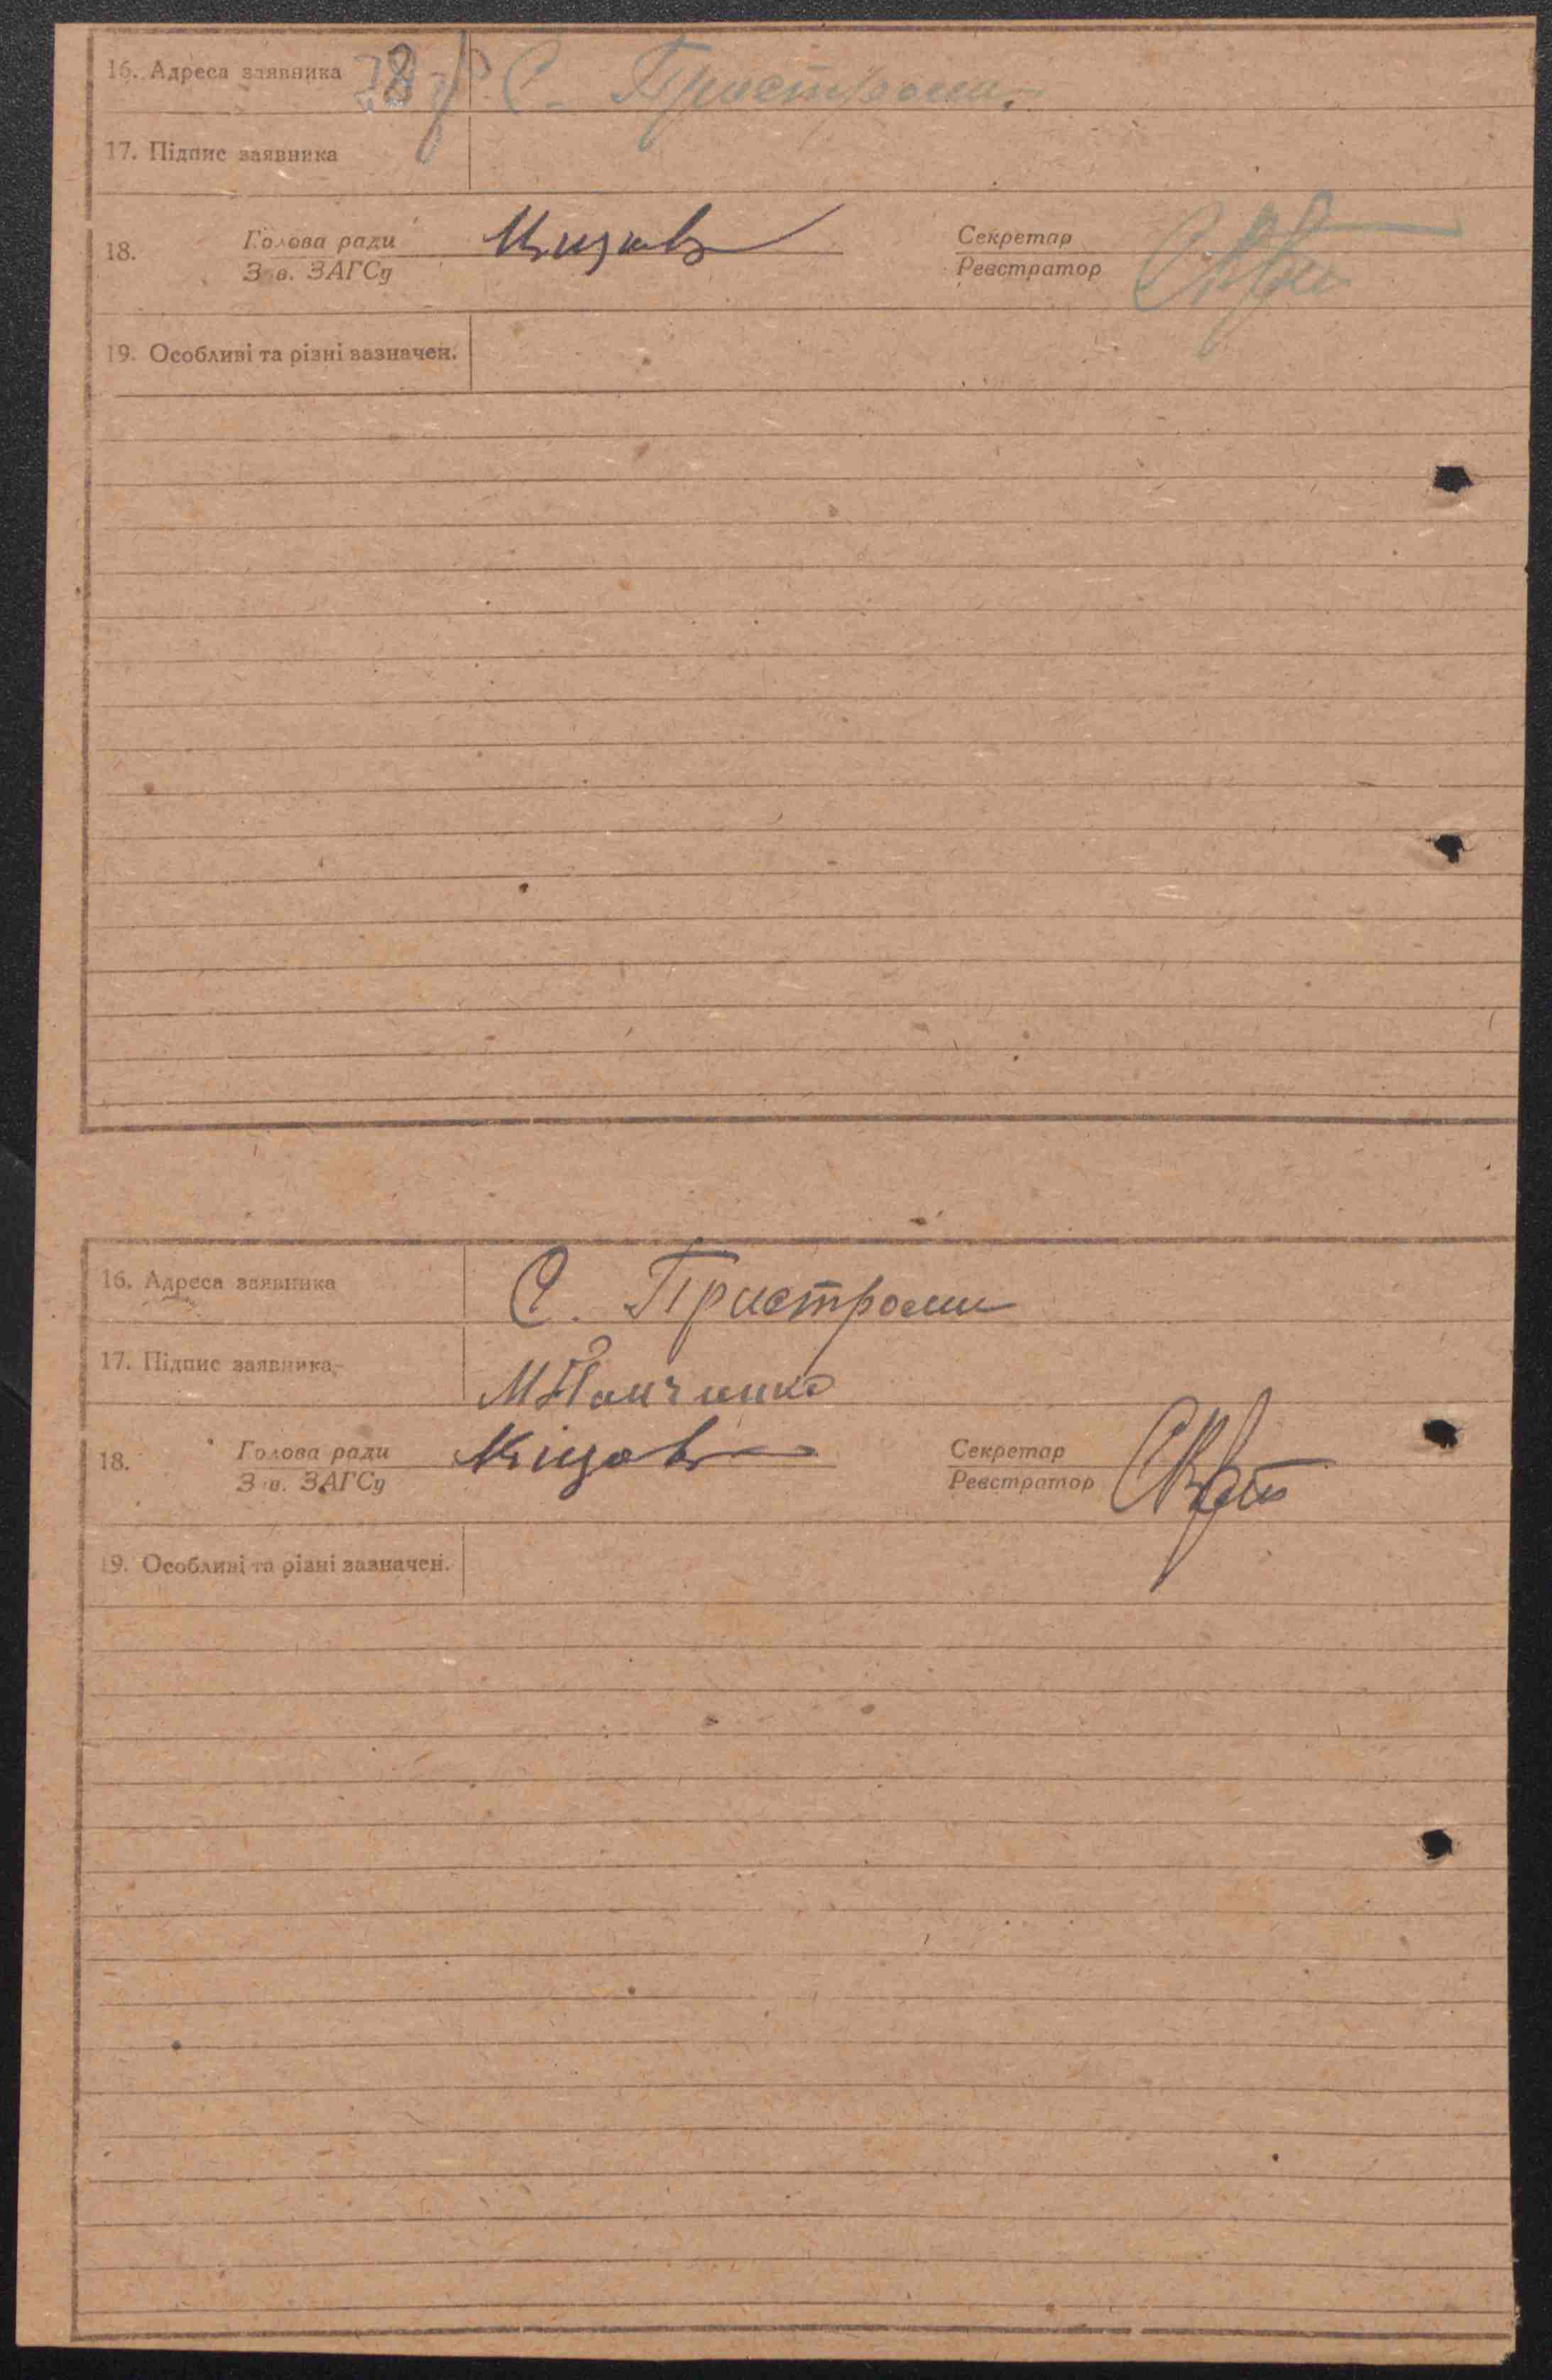 16. Адреса заявника С. Пристроми
17. Підпис заявника
18. Голова ради Секретар
Зав. ЗАГСу Реєстратор
19. Особливі та різні зазначен.
16. Адреса заявника С. Пристроми
17. Підпис заявника
18. Голова ради Секретар
Зав. ЗАГСу Реєстратор
19. Особливі та різні зазначен.